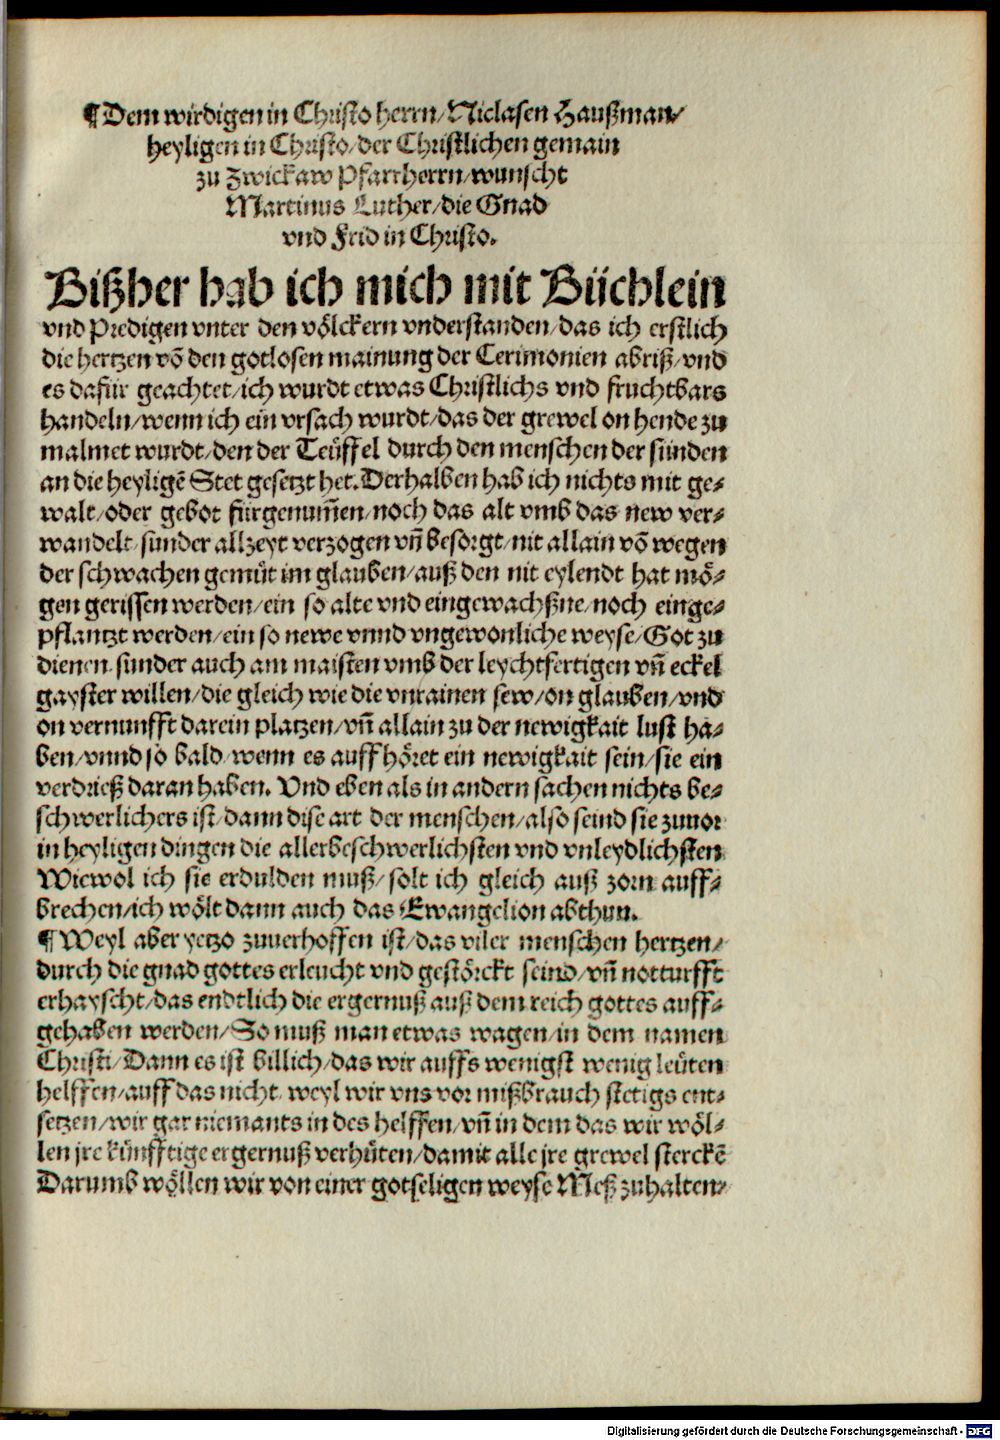 ¶ Dem wirdigen in Christo herrn/ Niclasen Haußman/
heyligen in Christo/ der Christlichen gemain
zu Zwickaw Pfarrherrn/ wunscht
Martinus Luther/ die Gnad
vnd Frid in Christo.
Bißher hab ich mich mit Büchlein
vnd Predigen vnter den völckern vnderstanden/ das ich erstlich
die hertzen võ den gotlosen mainung der Cerimonien abriß/ vnd
es dafür geachtet/ ich wurdt etwas Christlichs vnd fruchtbars
handeln/ wenn ich ein vrsach wurdt/ das der grewel on hende zu
malmet wurdt/ den der Teüffel durch den menschen der sünden
an die heyligẽ Stet gesetzt het. Derhalben hab ich nichts mit ge⸗
walt/ oder gebot fürgenum̃en/ noch das alt vmb das new ver⸗
wandelt/ sunder allzeyt verzogen vñ besorgt/ nit allain võ wegen
der schwachen gemüt im glauben/ auß den nit eylendt hat mö⸗
gen gerissen werden/ ein so alte vnd eingewachßne/ noch einge⸗
pflantzt werden/ ein so newe vnnd vngewonliche weyse/ Got zu
dienen/ sunder auch am maisten vmb der leychtfertigen vñ eckel
gayster willen/ die gleich wie die vnrainen sew/ on glauben/ vnd
on vernunfft darein platzen/ vñ allain zu der newigkait lust ha⸗
ben/ vnnd so bald/ wenn es auffhöret ein newigkait sein/ sie ein
verdrieß daran haben. Vnd eben als in andern sachen nichts be⸗
schwerlichers ist/ dann dise art der menschen/ also seind sie zuuor
in heyligen dingen die allerbeschwerlichsten vnd vnleydlichsten.
Wiewol ich sie erdulden muß/ solt ich gleich auß zorn auff⸗
brechen/ ich wölt dann auch das Ewangelion abthun.
¶ Weyl aber yetzo zuuerhoffen ist/ das viler menschen hertzen/
durch die gnad gottes erleucht vnd gestörckt seind/ vñ notturfft
erhayscht/ das endtlich die ergernuß auß dem reich gottes auff⸗
gehaben werden/ So muß man etwas wagen/ in dem namen
Christi/ Dann es ist billich/ das wir auffs wenigst wenig leüten
helffen/ auff das nicht/ weyl wir vns vor mißbrauch stetigs ent⸗
setzen/ wir gar niemants in des helffen/ vñ in dem das wir wöl⸗
len jre künfftige ergernuß verhüten/ damit alle jre grewel sterckẽ
Darumb wöllen wir von einer gotseligen weyse Meß zuhalten/
Digitalisierung gefördert durch die Deutsche Forschungsgemeinschaft - DFG